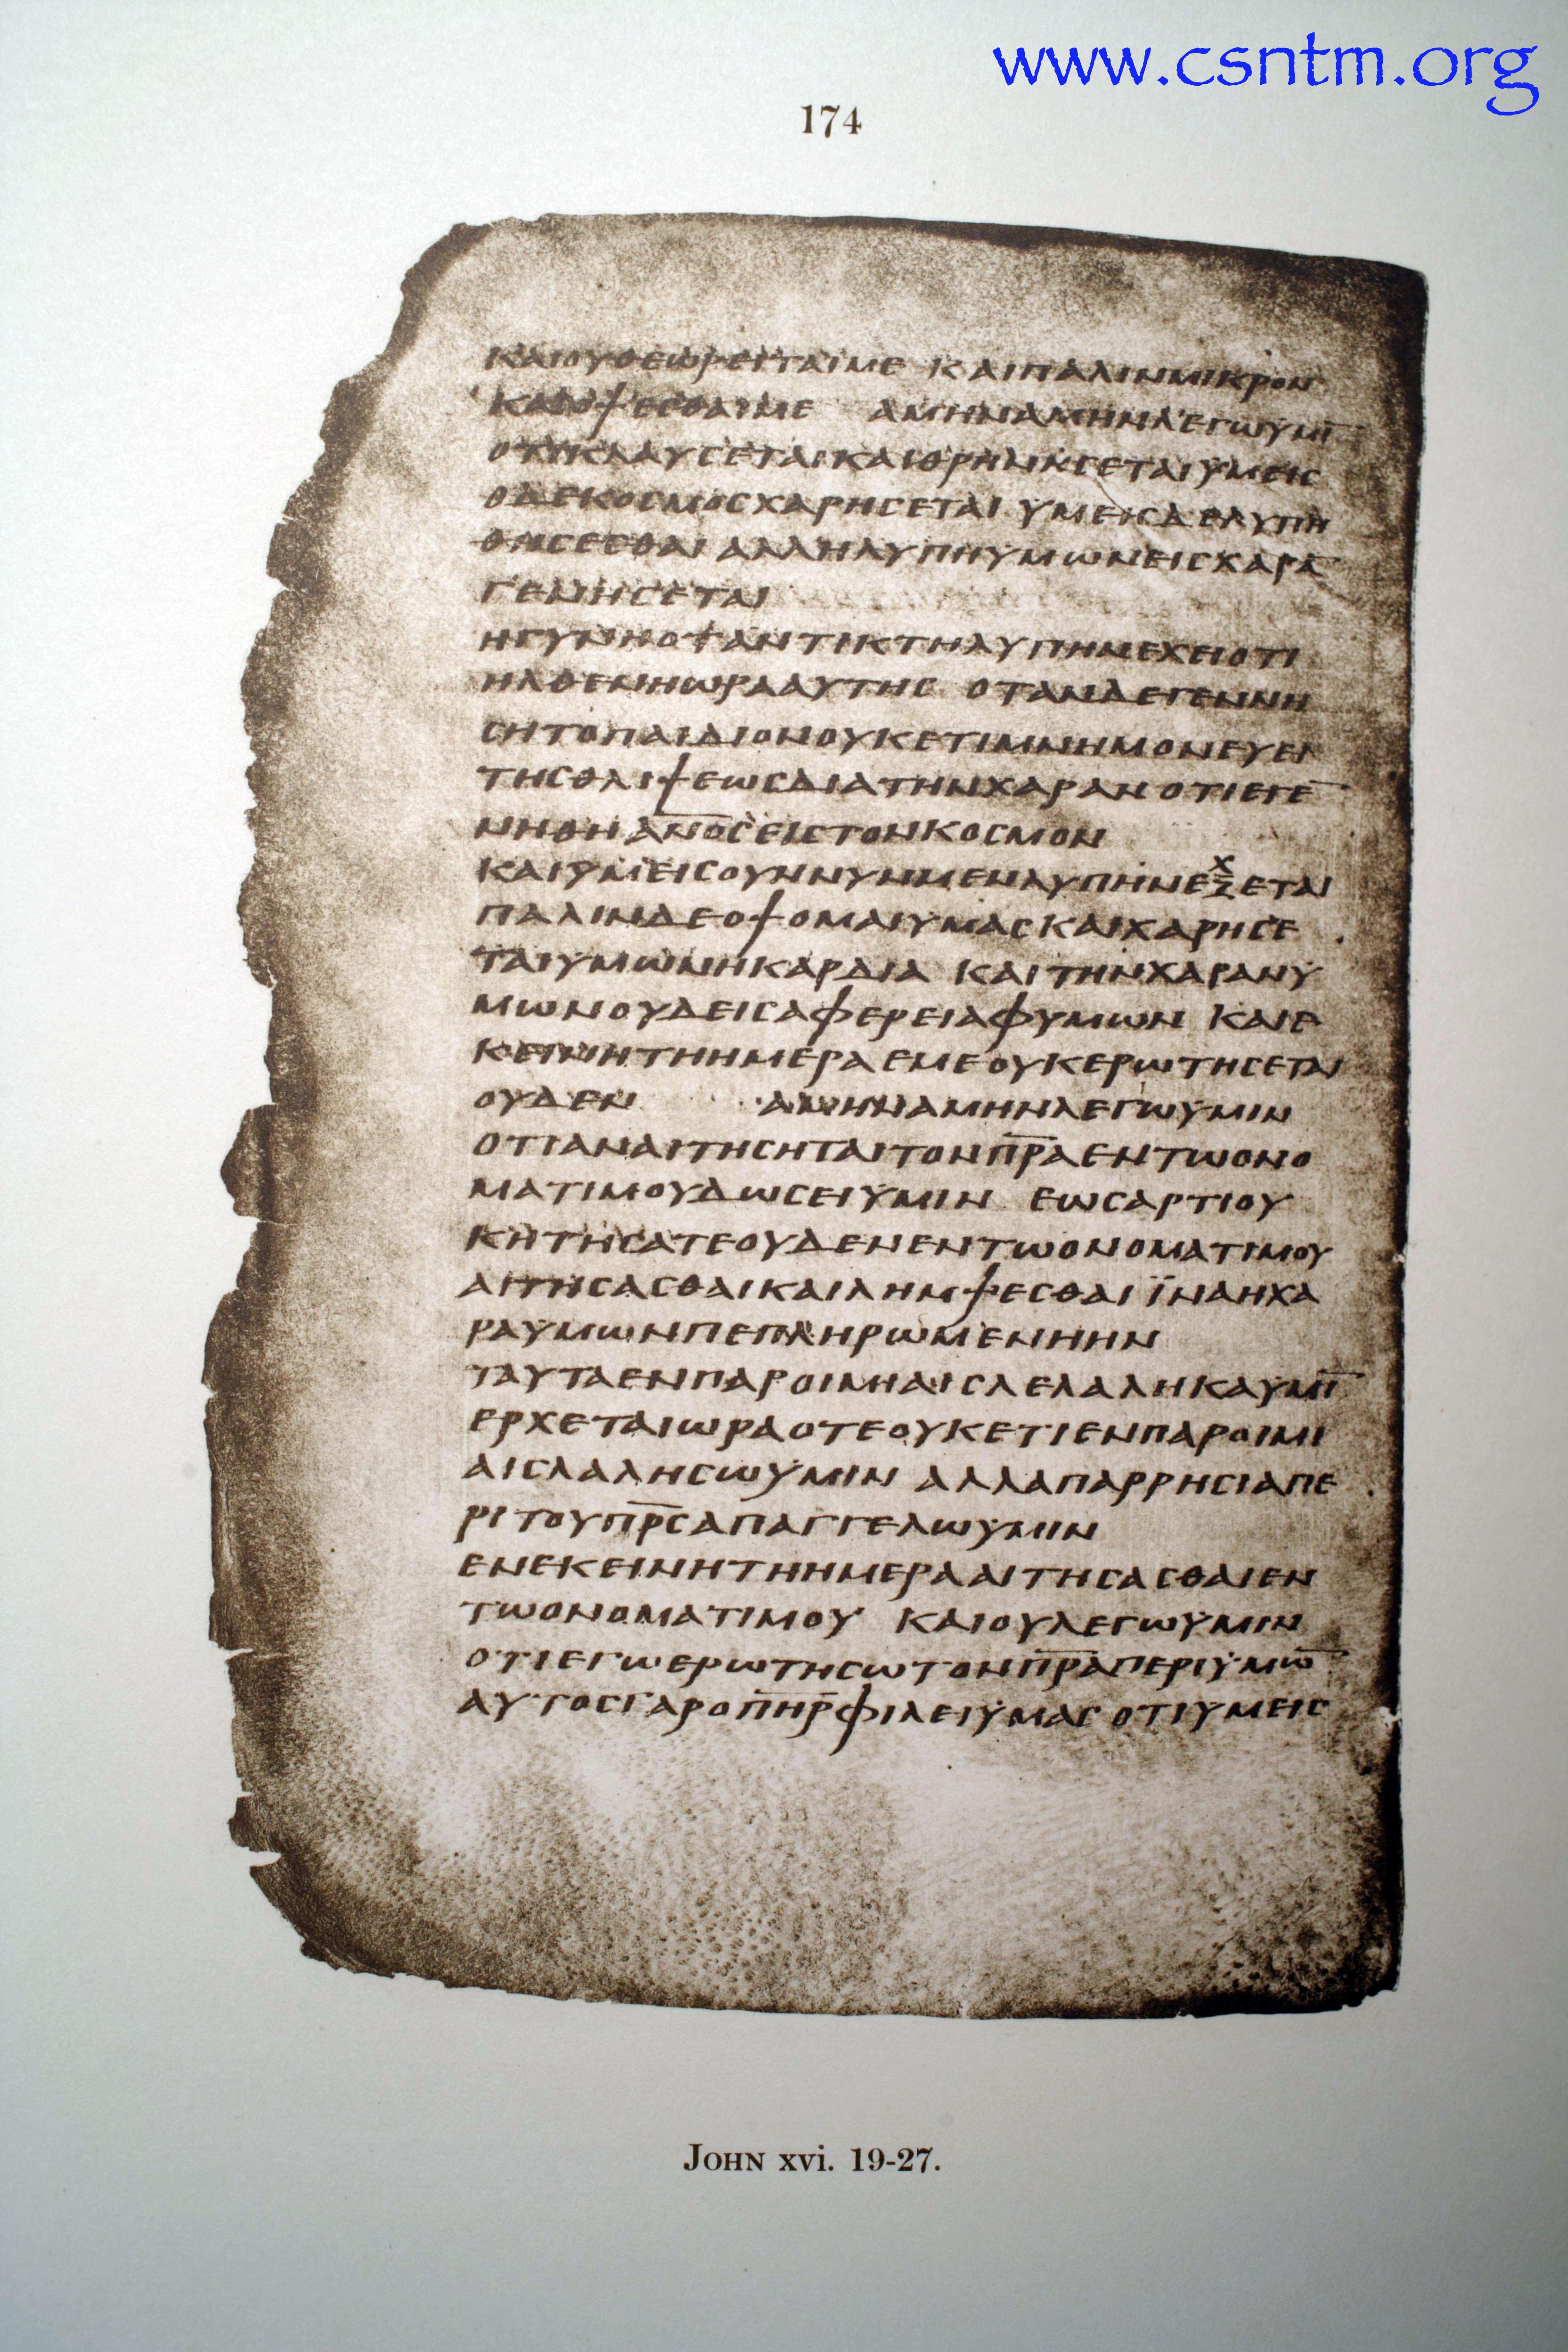 www.csntm.org
174
ΚΑΙΟΥΘΕΩΡΕΙΤΑΙΜΕ ΚΑΙΠΑΛΙΝΜΙΚΡΟΝ
ΚΑΙΟΨΕΣΘΑΙΜΕ ΑΜΗΝΑΜΗΝΛΕΓΩΥΜΙ̅
ΟΤΙΚΛΑΥΣΕΤΑΙΚΑΙΘΡΗΝΗΣΕΤΑΙΥΜΕΙΣ
ΟΔΕΚΟΣΜΟΣΧΑΡΗΣΕΤΑΙ ΥΜΕΙΣΔΕΛΥΠΗ
ΘΗΣΕΣΘΑΙ ΑΛΛΗΛΥΠΗΥΜΩΝΕΙΣΧΑΡΑ̅
ΓΕΝΗΣΕΤΑΙ
ΗΓΥΝΗΟΤΑΝΤΙΚΤΗΛΥΠΗΝΕΧΕΙΟΤΙ
ΗΛΘΕΝΗΩΡΑΑΥΤΗΣ ΟΤΑΝΔΕΓΕΝΝΗ
ΣΗΤΟΠΑΙΔΙΟΝΟΥΚΕΤΙΜΝΗΜΟΝΕΥΕΙ
ΤΗΣΘΛΙΨΕΩΣΔΙΑΤΗΝΧΑΡΑΝΟΤΙΕΓΕ̅
ΝΗΘΗΑ̅Ν̅Ο̅Σ̅ΕΙΣΤΟΝΚΟΣΜΟΝ
ΚΑΙΥΜΕΙΣΟΥΝΝΥΝΜΕΝΛΥΠΗΝΕΞΕΤΑΙ
ΠΑΛΙΝΔΕΟΨΟΜΑΙΥΜΑΣΚΑΙΧΑΡΗΣΕ
ΤΑΙΥΜΩΝΗΚΑΡΔΙΑ ΚΑΙΤΗΝΧΑΡΑΝΥ
ΜΩΝΟΥΔΕΙΣΑΦΕΡΕΙΑΦΥΜΩΝ ΚΑΙΕ
ΚΕΙΝΗΤΗΗΜΕΡΑΕΜΕΟΥΚΕΡΩΤΗΣΕΤΑΙ
ΟΥΔΕΝ ΑΜΗΝΑΜΗΝΛΕΓΩΥΜΙΝ
ΟΤΙΑΝΑΙΤΗΣΗΤΑΙΤΟΝΠ̅Ρ̅Α̅ΕΝΤΩΟΝΟ
ΜΑΤΙΜΟΥΔΩΣΕΙΥΜΙΝ ΕΩΣΑΡΤΙΟΥ
ΚΗΤΗΣΑΤΕΟΥΔΕΝΕΝΤΩΟΝΟΜΑΤΙΜΟΥ
ΑΙΤΗΣΑΣΘΑΙΚΑΙΛΗΜΨΕΣΘΑΙ ΪΝΑΗΧΑ
ΡΑΥΜΩΝΠΕΠΛΗΡΩΜΕΝΗΗΝ
ΤΑΥΤΑΕΝΠΑΡΟΙΜΗΑΙΣΛΕΛΑΛΗΚΑΥΜΙ̅
ΕΡΧΕΤΑΙΩΡΑΟΤΕΟΥΚΕΤΙΕΝΠΑΡΟΙΜΙ
ΑΙΣΛΑΛΗΣΩΥΜΙΝ ΑΛΛΑΠΑΡΡΗΣΙΑΠΕ
ΡΙΤΟΥΠ̅Ρ̅Σ̅ΑΠΑΓΓΕΛΩΥΜΙΝ
ΕΝΕΚΕΙΝΗΤΗΗΜΕΡΑΑΙΤΗΣΑΣΘΑΙΕΝ
ΤΩΟΝΟΜΑΤΙΜΟΥ ΚΑΙΟΥΛΕΓΩΥΜΙΝ
ΟΤΙΕΓΩΕΡΩΤΗΣΩΤΟΝΠ̅Ρ̅Α̅ΠΕΡΙΥΜΩ̅
ΑΥΤΟΣΓΑΡΟΠ̅Η̅Ρ̅ΦΙΛΕΙΥΜΑΣΟΤΙΥΜΕΙΣ
John xvi. 19-27.